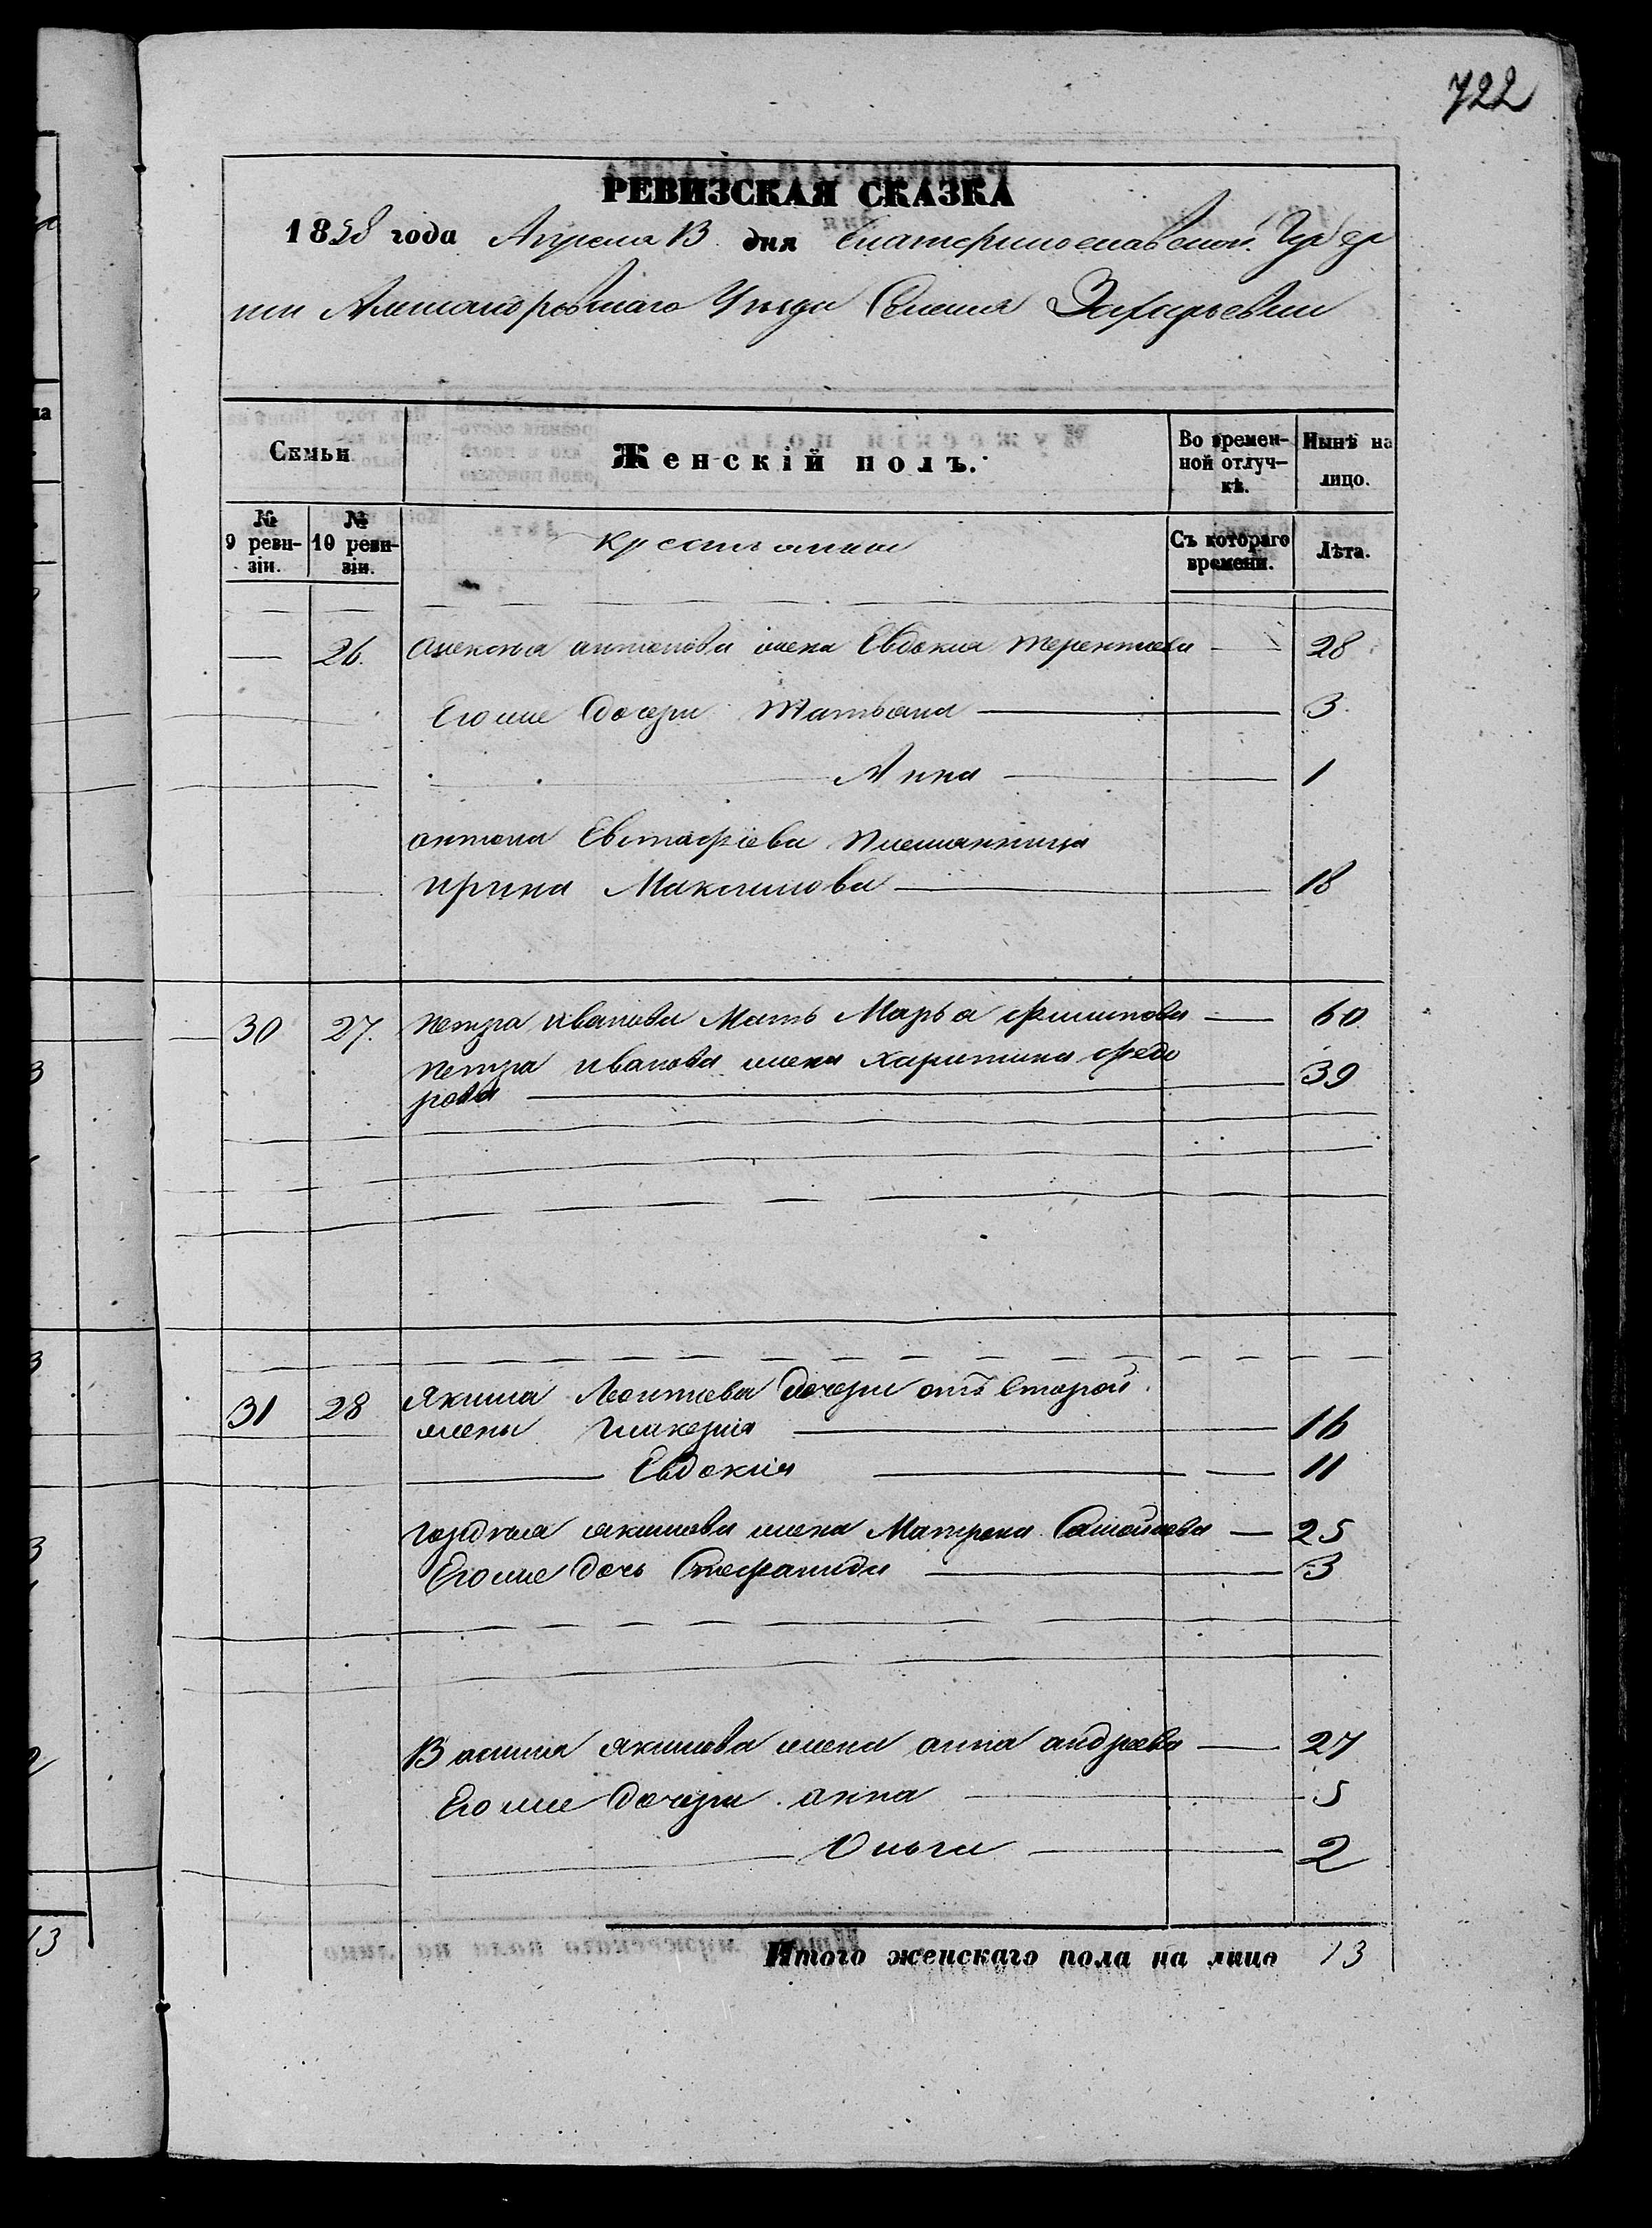 722
РЕВИЗСКАЯ СКАЗКА
1858 года Апреля 13 дня Екатеринославской Губер
нии Александровскаго Уезда Селения Захарьевки
Семьи
Женскій полъ.
Во времен-
ной отлуч-
кѣ.
Нынѣ на
лицо.
№
9 реви-
зіи.
№
10 реви-
зіи.
крестьянки
Съ котораго
времени.
Лѣта.
26. Алексея антонова жена Евдокия терентиева 28
Егоже дочери Татьяна 3
Анна 1
антона Евстафіева племянница
ирина Максимова 18
30 27. петра иванова Мать Марья филипова 60
петра иванова жена харитина федо
рова 39
31 28 Якима Леонтиева дочери отъ второй
жены гликерия 16
Евдокия 11
гордея якимова жена Матрена Самойлова 25
Егоже дочь Стефанида 3
Василия якимова жена анна андреева 27
Егоже дочери анна 5
Ольга 2
Итого женскаго пола на лицо 13